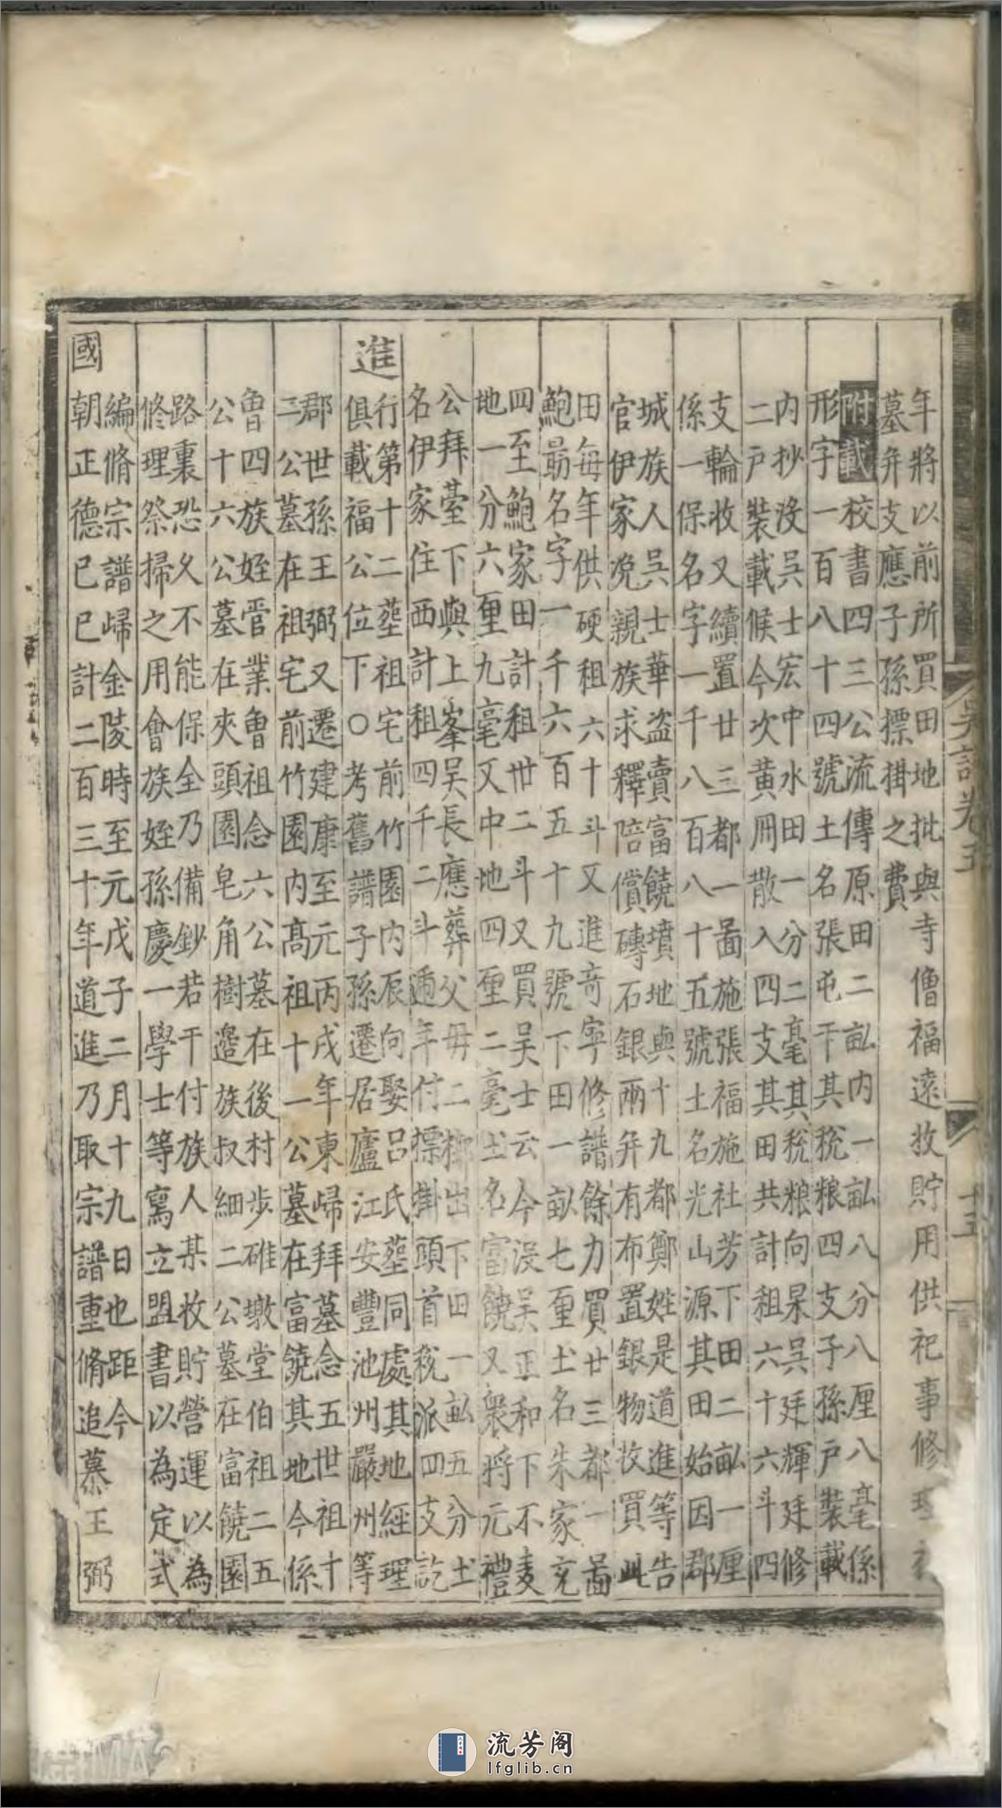 年將以前所買田地批與寺僧福遠收貯用供祀事修理
墓并支應子孫標掛之費
附載校書四三公流傳原田二畝内一畝八分八厘八毫係
形字一百八十四號土名張屯干其稅粮四支子孫戶裝載
内抄沒吳士宏中水田一分二毫其稅粮向杲吳廷輝廷修
二戶裝載候今次黄冊散入四支其田共計租六十六斗四
支輪收又續置廿三都一啚施張福施社芳下田二畝一厘
係一保名字一千八百八十五號土名光山源其田始因郡
城族人吳士華盗賣富饒墳地與十九都鄭姓是道進等告
官伊家浼親族求釋陪償磚石銀兩并有布置銀物收買此
田每年供硬租六十斗又進奇寧修譜餘力買廿三都一啚
鮑朂名字一千六百五十九號下田一畝七厘土名朱家充
四至鮑家田計租卅二斗又買吳士云今沒吳正和下不麦
地一分六厘九毫又中地四厘二毫土名富饒又衆將元禮
公拜臺下與上峯吳長應葬父毋二出下田一畝五分土
名伊家住西計租四千二斗遞年付標掛頭首稅派四支訖
進
行第十二塟祖宅前竹園内辰向娶吕氏塟同處其地經理
俱載福公位下○考舊譜子孫遷居廬江安豐池州嚴州等
郡世孫王弼又遷建康至元丙戌年東歸拜墓念五世祖十
二公墓在祖宅前竹園内髙祖十一公墓在富饒其地今係
魯四族姪管業魯祖念六公墓在後村步碓墩堂伯祖二五
公十六公墓在夾頭園皂角樹邉族叔細二公墓在富饒園
路裏恐久不能保全乃備鈔若干付族人某收貯營運以為
修理祭掃之用會族姪孫慶一學士等寫立盟書以為定式
編脩宗譜歸金陵時至元戊子二月十九日也距今
國
朝正德已巳計二百三十年道進乃取宗譜重脩追慕王弼
吳記卷五
十五
流芳阁
lfglib.cn